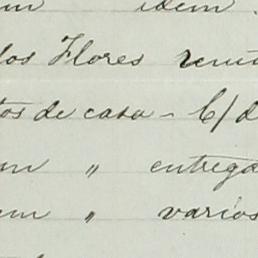 idem
los Flores
tos de casa - C/d
" entrega
em " varios